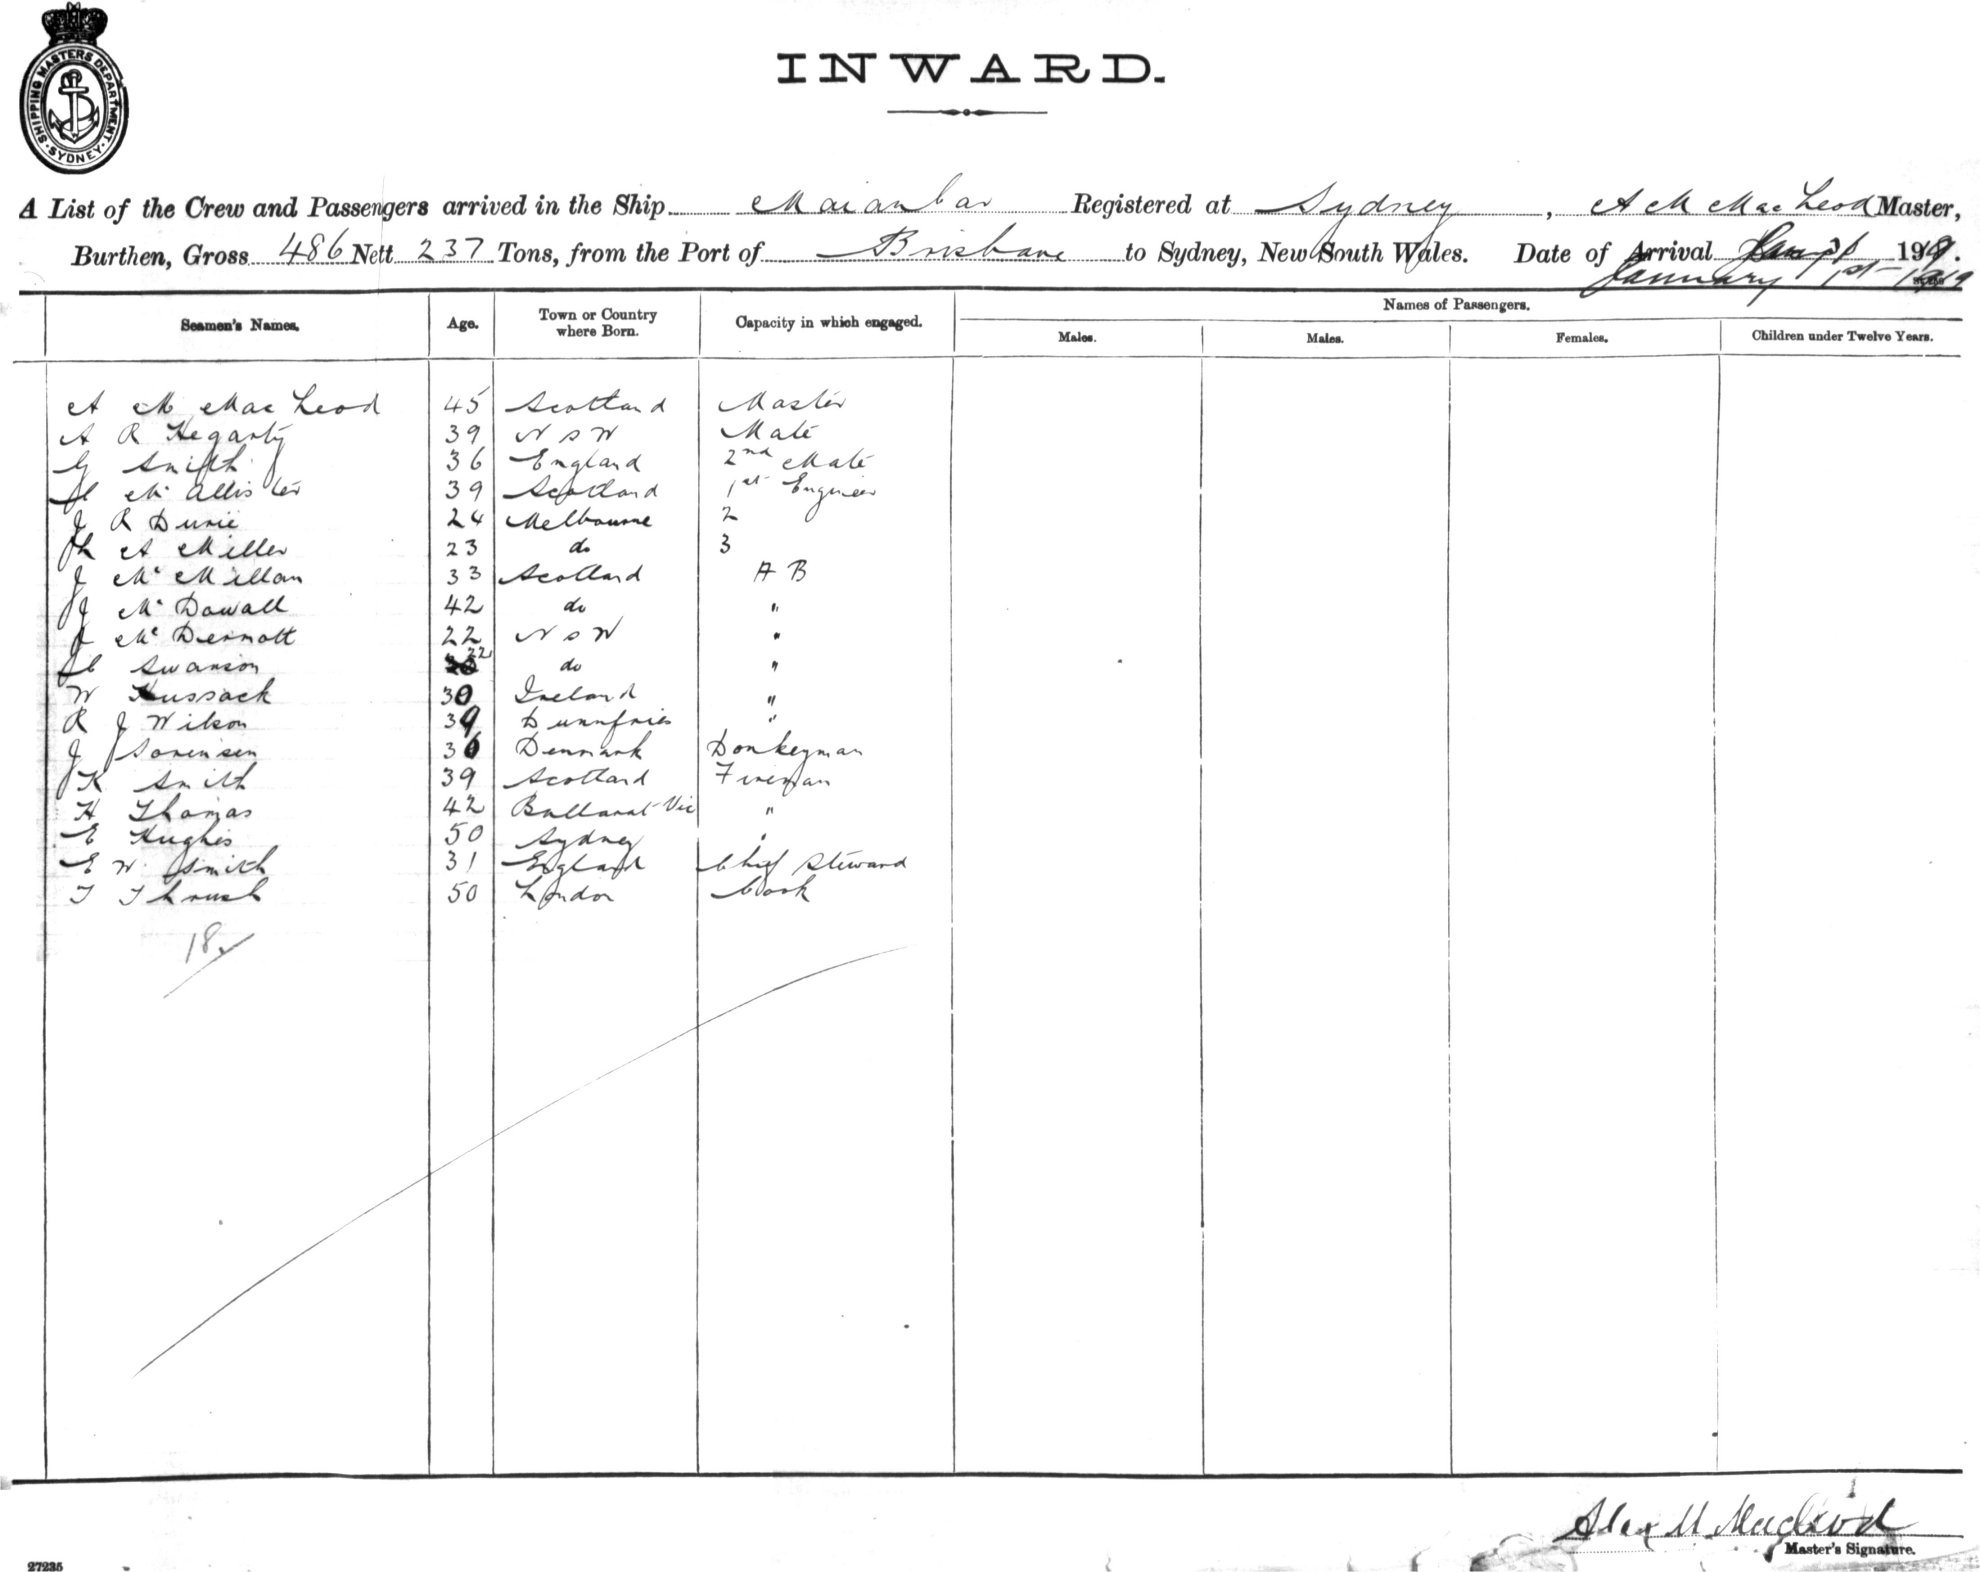 SHIPPING MASTERS DEPARTMENT. SYDNEY.
INWARD.
A List of the Crew and Passengers arrived in the Ship Maianbar Registered at Sydney, A M MacLeod Master,
Burthen, Gross 486 Nett 237 Tons, from the Port of Brisbane to Sydney, New South Wales. Date of Arrival 1919.
January 1st 1919
Names of Passengers.
Seamen's Names. Age. Town or Country where Born. Capacity in which engaged. Males. Males. Females. Children under Twelve Years.
A M MacLeod 45 Scotland Master
A R Hegarty 39 N S W Mate
G Smith 36 England 2nd Mate
McAllister 39 Scotland 1st Engineer
J R Durie 24 Melbourne 2
A Miller 23 do 3
J McMillan 33 Scotland A B
J McDowall 42 do "
J McDermott 22 N S W "
C Swanson 22 do "
W Hussack 30 Ireland "
R J Wilson 39 Dumfries "
J Sorensen 36 Denmark Donkeyman
K Smith 39 Scotland Fireman
H Thomas 42 Ballarat Vic "
E Hughes 50 Sydney "
E W Smith 31 England Chief Steward
T Thrush 50 London Cook
18
Alex M Macleod
Master's Signature.
27235